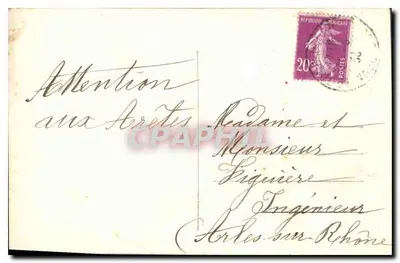 REPUBLIQUE FRANÇAISE
20c
POSTES
Attention
aux Arêtes
Madame et
Monsieur
Figuière
Ingénieur
Arles sur Rhône
CPAPHIL